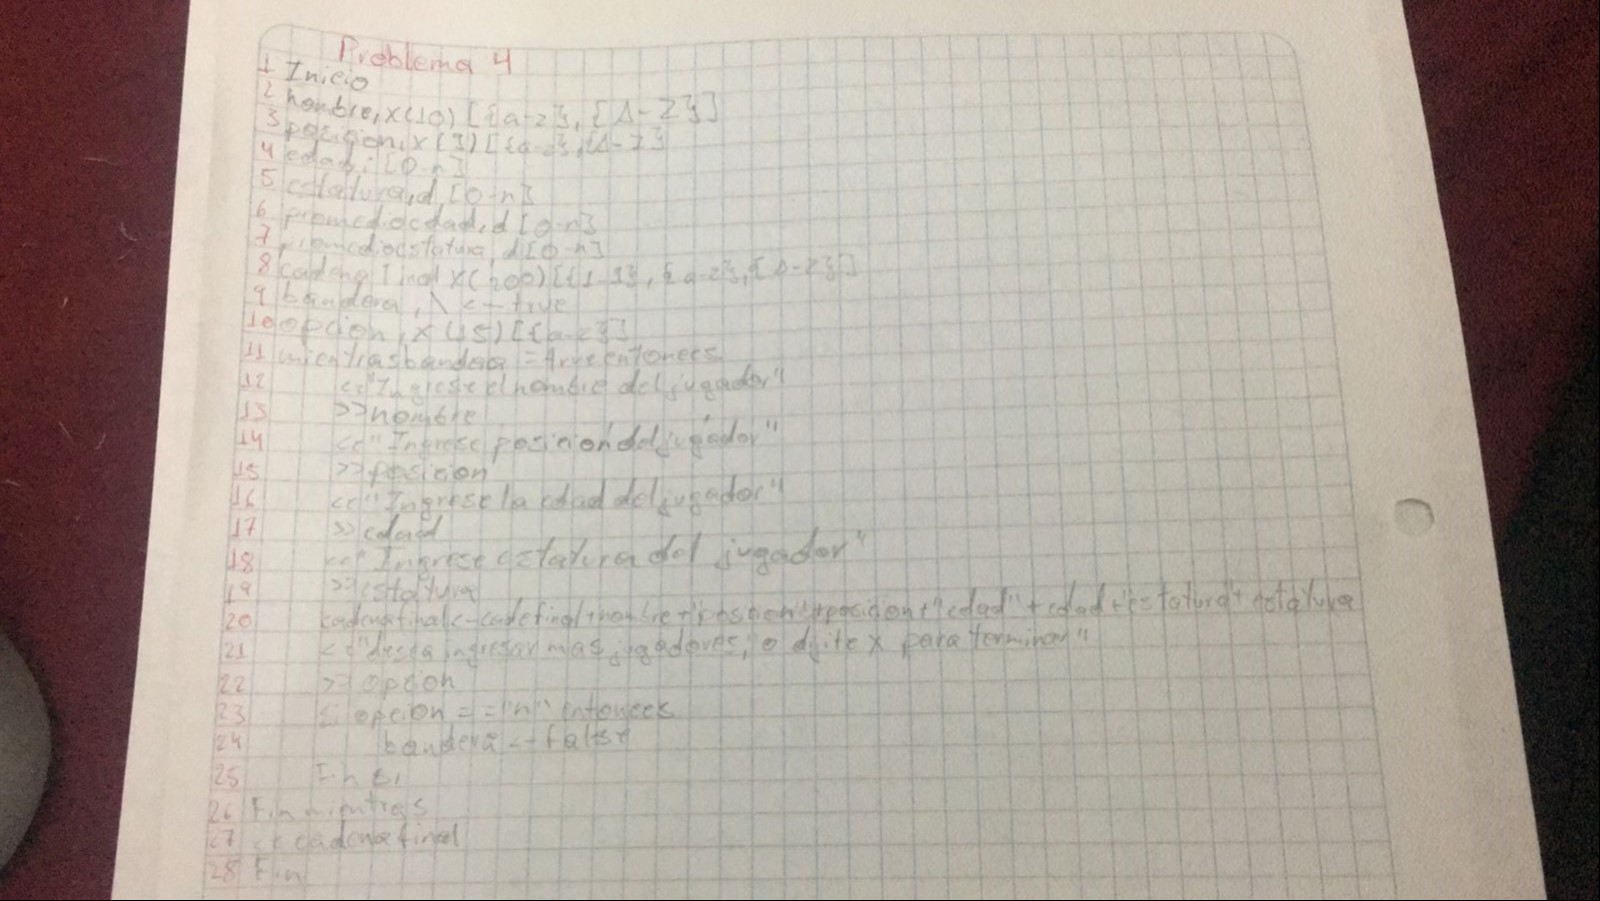 Problema 4
1 Inicio
2 nombre, x(10) [{a-z}, {A-Z}]
3 posicion, x(3) [{a-z}, {A-Z}
4 edad, i [0-n]
5 estatura, d, [0-n]
6 promedioedad, d [0-n]
7 promedioestatura, d [0-n]
8 x(200) [{1-1}, {a-z}, {A-Z}]
9 bandera, \ <- true
10 opcion, x(15) [{a-z}]
11 mientras bandera = true entonces
12 <<"Ingrese el nombre del jugador"
13 >>nombre
14 <<"Ingrese posicion del jugador"
15 >>posicion
16 <<"Ingrese la edad del jugador"
17 >>edad
18 <<"Ingrese estatura del jugador"
19 >>estatura
20 cadenafinal<-cadefinal+nombre+"posicion"+posicion+"edad"+edad+"estatura"+estatura
21 <<"desea ingresar mas jugadores, o dijite x para terminar"
22 >>opcion
23 Si opcion =="n" entonces
24 bandera <- false
25 Fin si
26 Fin mientras
27 <<cadenafinal
28 Fin